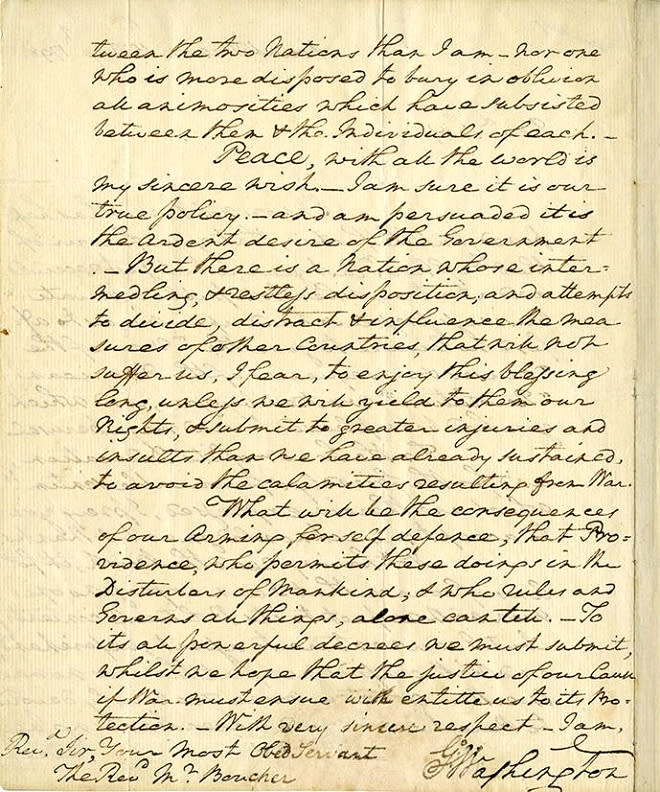 tween the two Nations than I am - nor one
who is more disposed to bury in oblivion
all animosities which have subsisted
between them & the Individuals of each. -
Peace, with all the world is
my sincere wish. - I am sure it is our
true policy. - and am persuaded it is
the Ardent desire of the Government
. - But there is a Nation whose inter=
medling, & restless disposition, and attempts
to divide, distract & influence the mea
sures of other Countries, that will not
suffer us, I fear, to enjoy this blessing
long, unless we will yield to them our
Rights, & submit to greater injuries and
insults than we have already sustained,
to avoid the calamities resulting from War.
What will be the consequences
of our Arming for self defence, that Pro=
vidence, who permits these doings in the
Disturbers of Mankind; & who rules and
Governs all things, alone can tell. - To
its all powerful decrees we must submit,
whilst we hope that the justice of our Cause
if War must ensue will entitle us to its Pro=
tection. - With very sincere respect - I am,
Revd. Sir, Your most Obed Servant
Go: Washington
The Revd Mr. Boucher